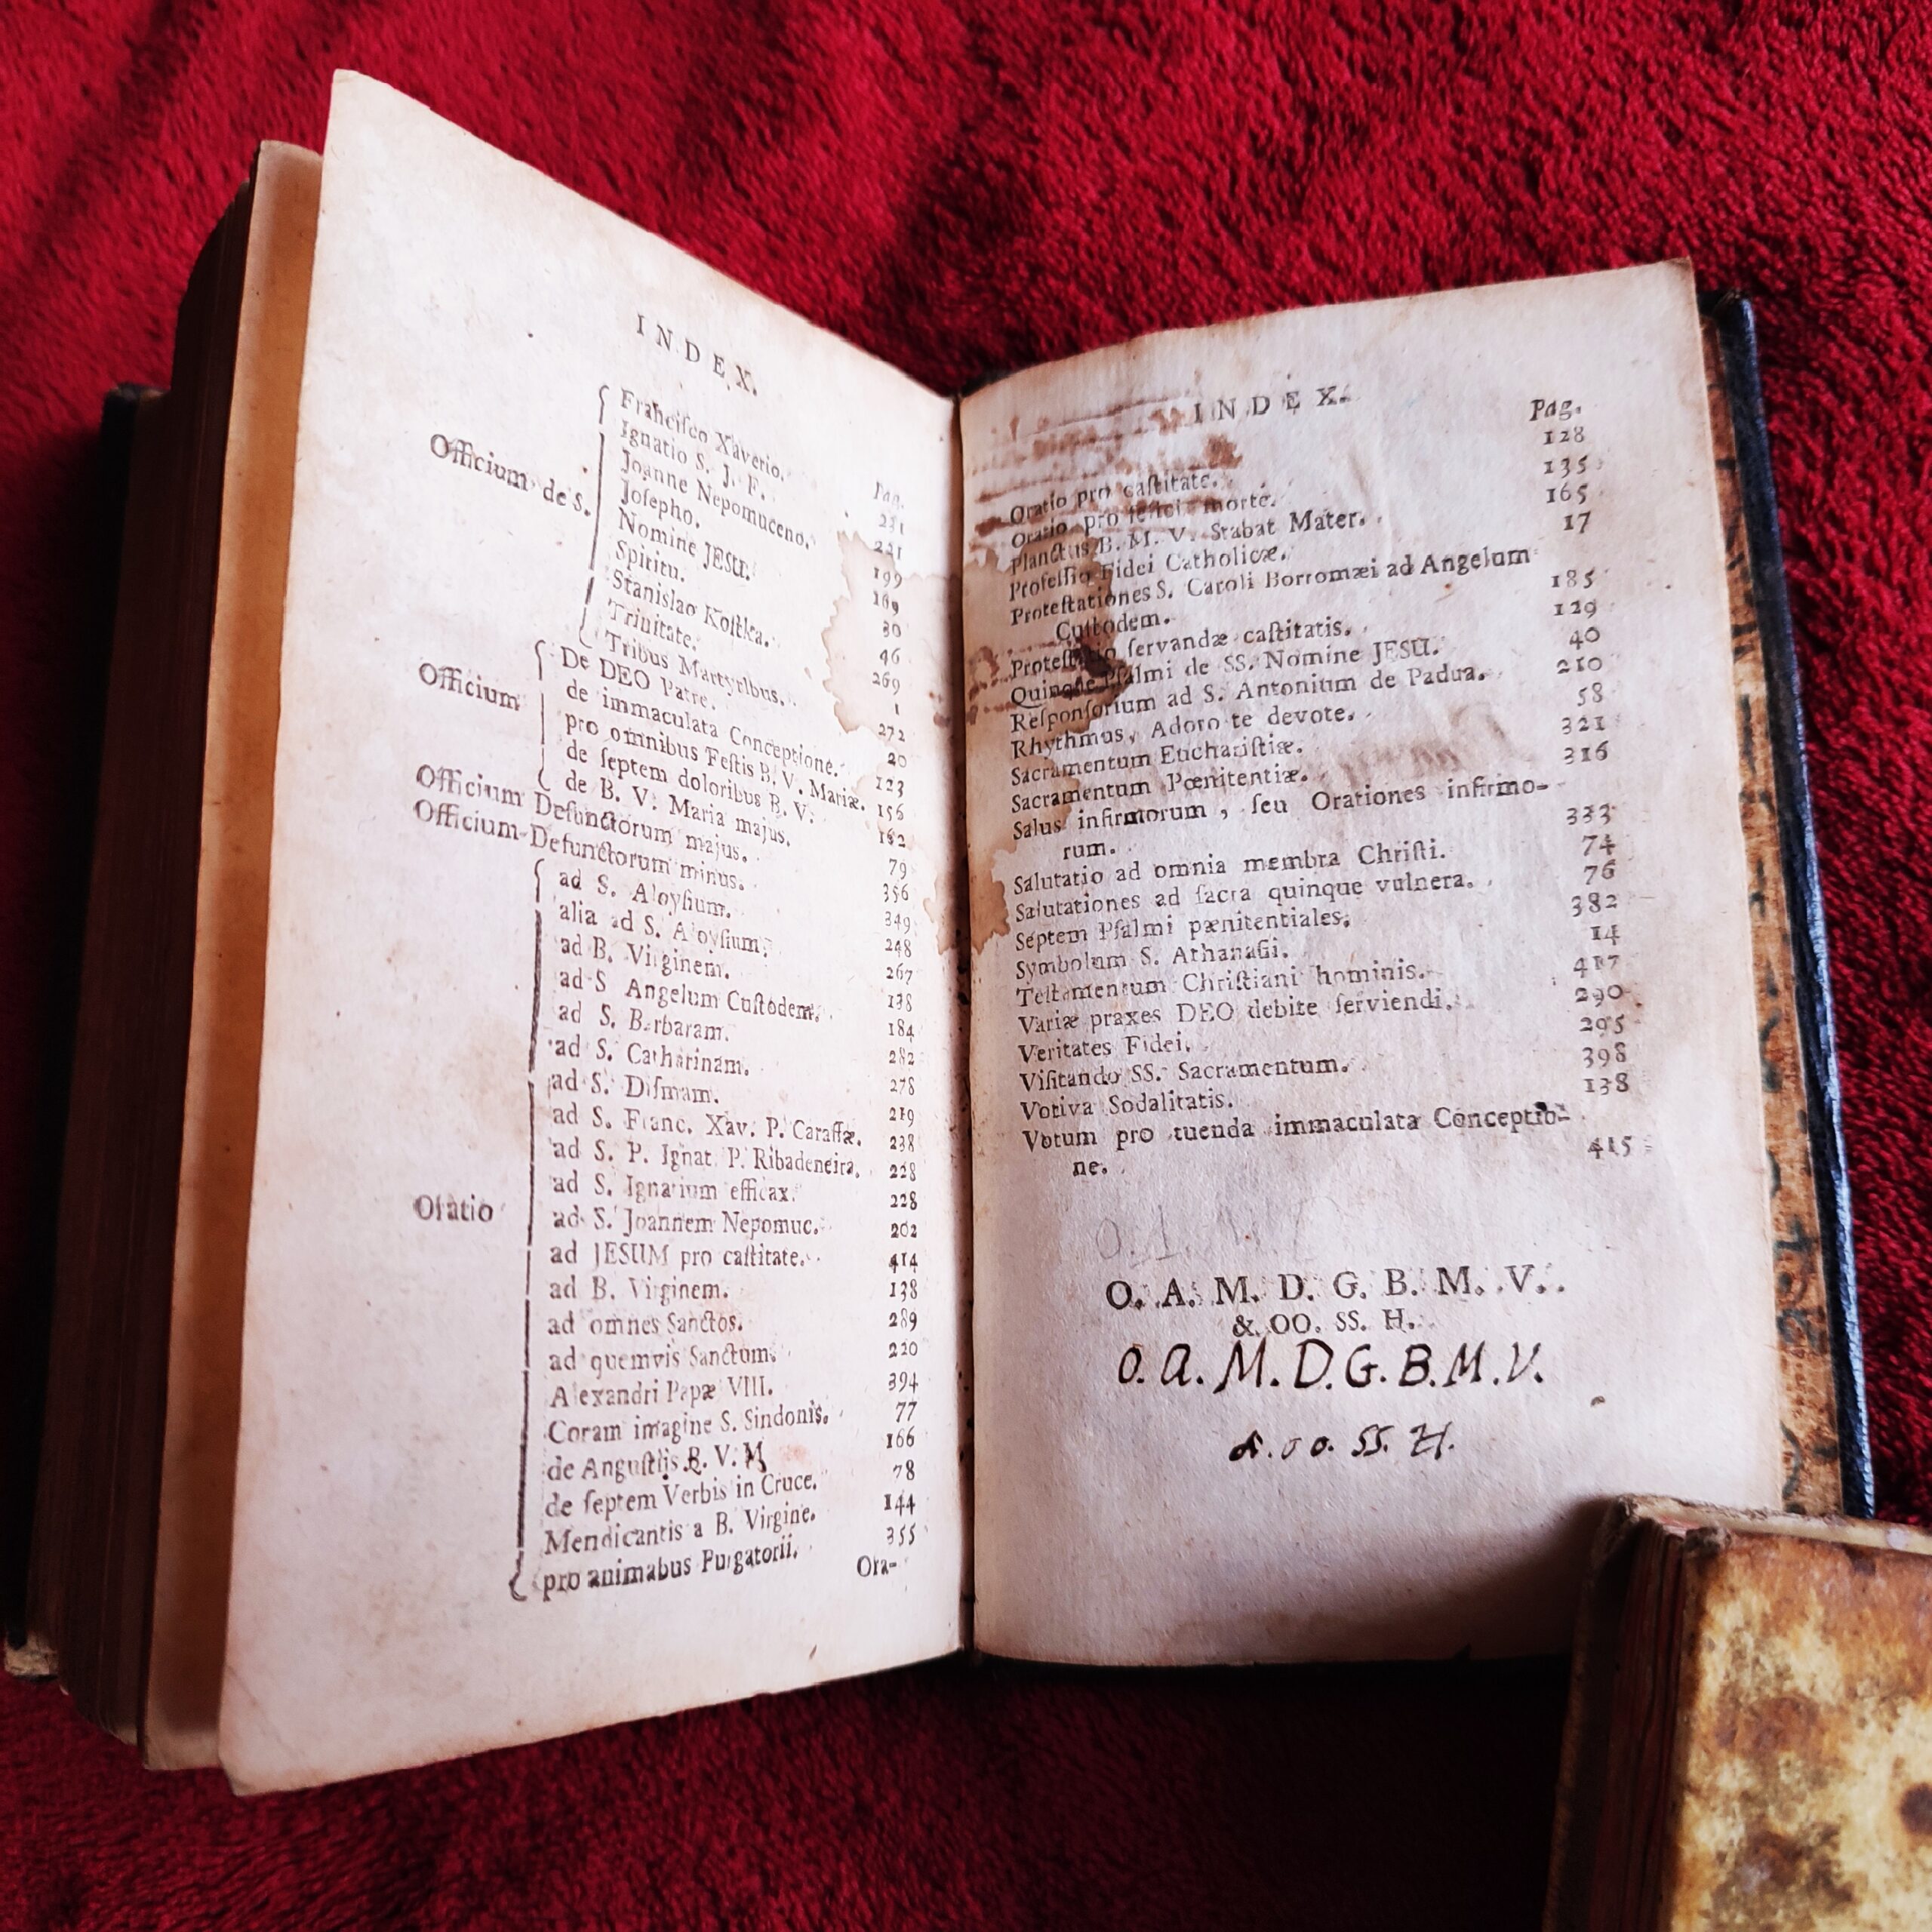 INDEX.
Pag.
Officium de S.
Franciſco Xaverio. 221
Ignatio S. J. F. 221
Joanne Nepomuceno. 199
Joſepho. 169
Nomine JESU. 30
Spiritu. 46
Stanislao Koſtka. 269
Trinitate. 1
Tribus Martyribus. 272
Officium
De DEO Patre. 20
de immaculata Conceptione. 123
pro omnibus Feſtis B. V. Mariæ. 156
de ſeptem doloribus B. V. 162
de B. V. Maria majus. 79
Officium Defunctorum majus. 356
Officium Defunctorum minus. 349
Oratio
ad S. Aloyſium. 248
alia ad S. Aloyſium. 267
ad B. Virginem. 138
ad S Angelum Cuſtodem. 184
ad S. Barbaram. 282
ad S. Catharinam. 278
ad S. Diſmam. 219
ad S. Franc. Xav. P. Caraffæ. 238
ad S. P. Ignat. P. Ribadeneira. 228
ad S. Ignatium efficax. 228
ad S. Joannem Nepomuc. 202
ad JESUM pro caſtitate. 414
ad B. Virginem. 138
ad omnes Sanctos. 289
ad quemvis Sanctum. 220
Alexandri Papæ VIII. 394
Coram imagine S. Sindonis. 77
de Anguſtiis B. V. M 166
de ſeptem Verbis in Cruce. 78
Mendicantis a B. Virgine. 144
pro animabus Purgatorii. 355
Ora-
INDEX.
Pag.
Oratio pro caſtitate. 128
Oratio pro felici morte. 135
Planctus B. M. V. Stabat Mater. 165
Profeſſio Fidei Catholicæ. 17
Proteſtationes S. Caroli Borromæi ad Angelum
Cuſtodem. 185
Proteſtatio ſervandæ caſtitatis. 129
Quinque Pſalmi de SS. Nomine JESU. 40
Reſponſorium ad S. Antonium de Padua. 210
Rhythmus, Adoro te devote. 58
Sacramentum Euchariſtiæ. 321
Sacramentum Pœnitentiæ. 316
Salus infirmorum, ſeu Orationes infirmo-
rum. 333
Salutatio ad omnia membra Chriſti. 74
Salutationes ad ſacra quinque vulnera. 76
Septem Pſalmi pænitentiales. 382
Symbolum S. Athanaſii. 14
Teſtamentum Chriſtiani hominis. 417
Variæ praxes DEO debite ſerviendi. 290
Veritates Fidei. 295
Viſitando SS. Sacramentum. 398
Votiva Sodalitatis. 138
Votum pro tuenda immaculata Conceptio-
ne. 415
O. A. M. D. G. B. M. V.
& OO. SS. H.
O. A. M. D. G. B. M. V.
&. oo. SS. H.